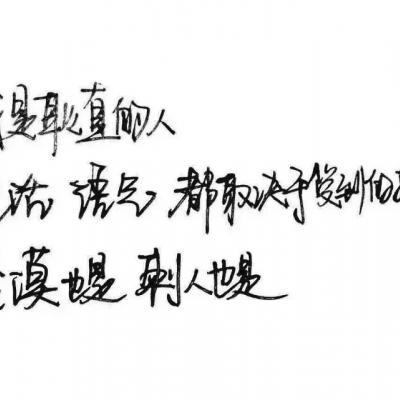 是耿直的人
话 语气 都取决于
漠也是 刺人也是